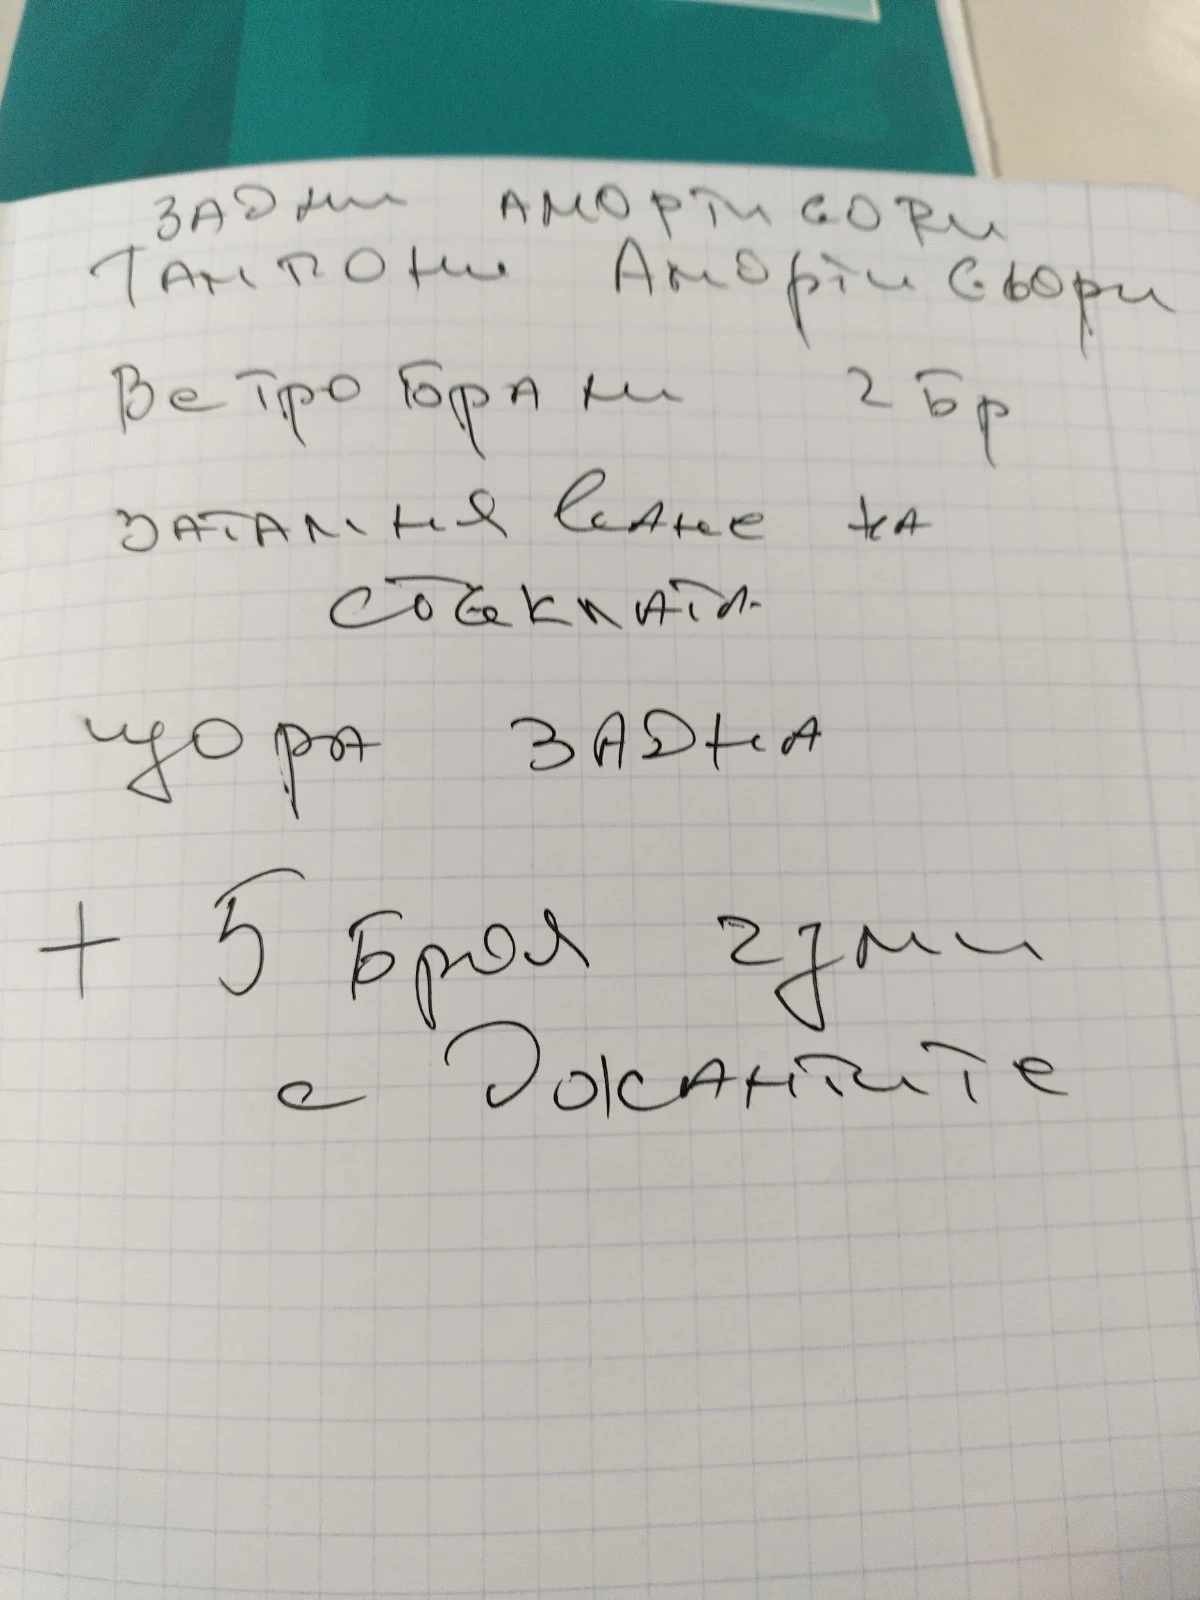 ЗАДНИ АМОРТИСОРИ
ТАМПОНИ АМОРТИСЬОРИ
ВЕТРОБРАНИ 2 БР
ЗАТАМНЯВАНЕ НА
СТЕКЛАТА
ЩОРА ЗАДНА
+ 5 БРОЯ ГУМИ
С ДЖАНТИТЕ